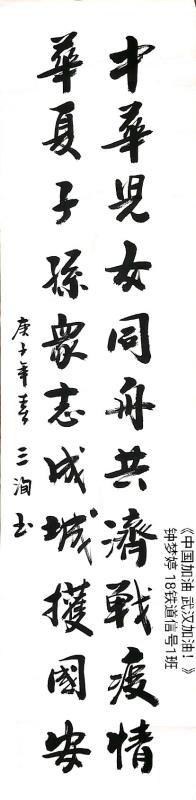 中華児女同舟共濟戰疫情
華夏子孫衆志成城擭國安
庚子年春 三洵书
《中国加油 武汉加油！》
钟梦婷 18铁道信号1班